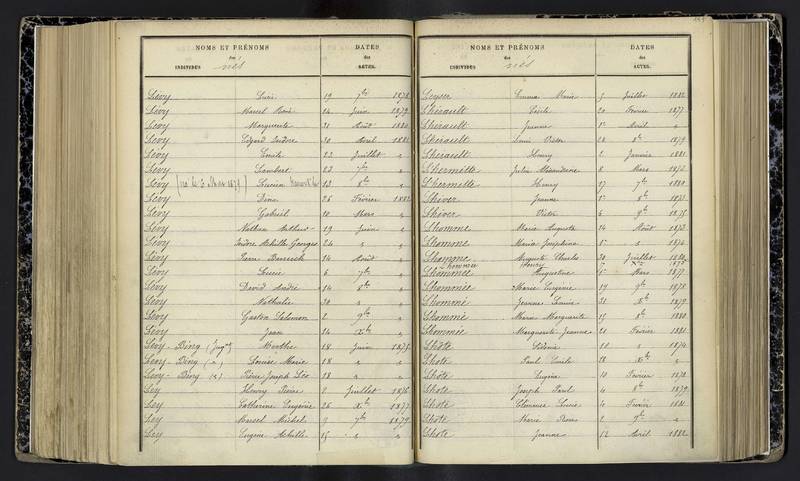 NOMS ET PRÉNOMS DATES
des des
INDIVIDUS nés ACTES.
Lévy Lucie 19 7bre 1878
Lévy Marcel René 14 Juin 1879
Lévy Marguerite 31 Août 1880
Lévy Edgard Isidore 30 Avril 1881
Lévy Emile 23 Juillet "
Lévy Lambert 23 7bre "
Lévy Lucien 13 8bre "
Lévy Dina 26 Février 1882
Lévy Gabriel 10 Mars "
Lévy Nathan Arthur 19 Juin "
Lévy Isidore Achille Georges 24 " "
Lévy Pierre 14 Août "
Lévy Lucie 6 7bre "
Lévy David André 14 8bre "
Lévy Nathalie 30 " "
Lévy Gaston Salomon 2 9bre "
Lévy Jean 14 Xbre "
Lévy-Bing Marthe 18 Juin 1875
Lévy-Bing Louise Marie 18 " "
Lévy-Bing Pierre Joseph Léo 18 " "
Ley Henry Pierre 2 Juillet 1876
Ley Catherine Eugénie 26 Xbre 1877
Ley Marcel Michel 9 7bre 1879
Ley Eugène Achille 15 " "
NOMS ET PRÉNOMS DATES
des des
INDIVIDUS nés ACTES.
Leyser Emma Marie 5 Juillet 1882
Lhérault Cécile 20 Février 1877
Lhérault Jeanne Avril "
Lhérault Louis Victor 28 8bre 1879
Lhérault Henry 2 Janvier 1881
Lhermitte Julie Alexandrine 8 Mars 1873
Lhermitte Henry 17 7bre 1880
Lhiver Jeanne 8bre
Lhiver Victor 6 9bre 1875
Lhomme Marie Auguste 14 Août 1873
Lhomme Maria Joséphine " 1874
Lhomme Auguste Charles 30 Juillet 1880
Lhommée Augustine Mars 1877
Lhommée Marie Eugénie 19 9bre 1878
Lhommé Jeanne Louise 31 Xbre 1879
Lhommée Marie Marguerite 15 8bre 1880
Lhommée Marguerite Jeanne 21 Février 1881
Lhôte " 1874
Lhote Paul Emile 18 Xbre "
Lhote Eugène 10 Février 1878
Lhote Joseph Paul 4 8bre 1879
Lhote Clémence Louise Février 1881
Lhôte Marie 2 9bre "
Lhote Jeanne 12 Avril 1882